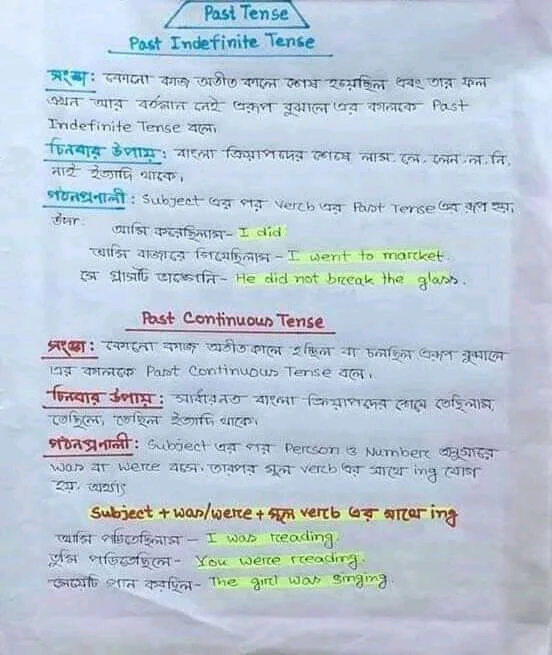 Past Tense
Past Indefinite Tense
সংজ্ঞা: কোনো কাজ অতীত কালে শেষ হয়েছিল এবং তার ফল
এখন আর বর্তমান নেই এরূপ বুঝালে এর কালকে Past
Indefinite Tense বলে।
চিনবার উপায়: বাংলা ক্রিয়াপদের শেষে লাম, লে, লেন, ল, নি,
নাই ইত্যাদি থাকে।
গঠনপ্রনালী: Subject এর পর Verb এর Past Tense এর রূপ হয়।
উদা:
আমি করেছিলাম- I did
আমি বাজারে গিয়েছিলাম - I went to market.
সে গ্লাসটি ভাঙ্গেনি- He did not break the glass.
Past Continuous Tense
সংজ্ঞা: কোনো কাজ অতীত কালে হচ্ছিল বা চলছিল এরূপ বুঝালে
এর কালকে Past Continuous Tense বলে।
চিনবার উপায়: সাধারনত বাংলা ক্রিয়াপদের শেষে তেছিলাম,
তেছিলে, তেছিল ইত্যাদি থাকে।
গঠনপ্রনালী: Subject এর পর Person ও Number অনুসারে
was বা were বসে, তারপর মূল verb এর সাথে ing যোগ
হয়, অর্থাৎ
Subject + was/were + মূল verb এর সাথে ing
আমি পড়িতেছিলাম - I was reading.
তুমি পড়িতেছিলে- You were reading.
মেয়েটি গান করছিল- The girl was singing.